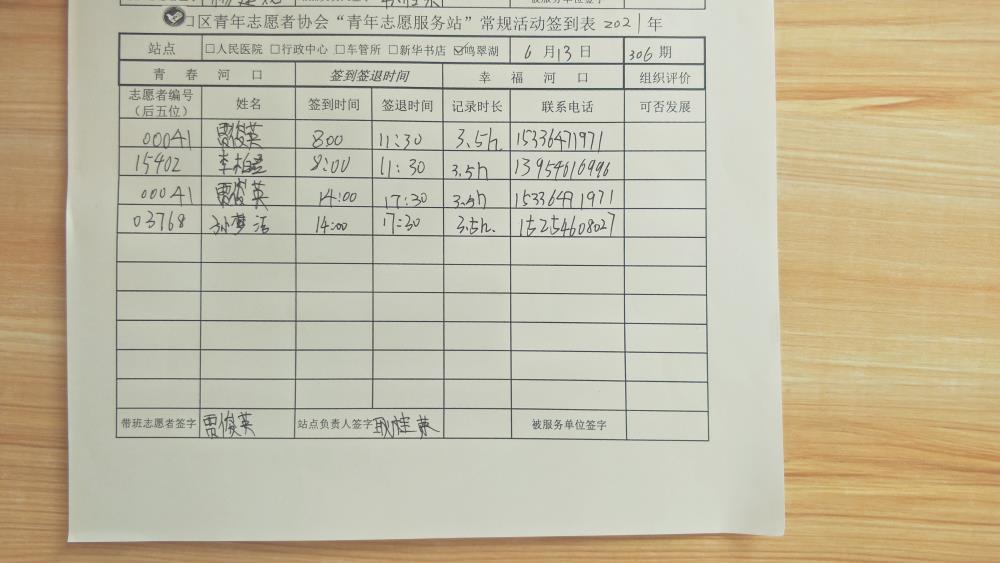 口区青年志愿者协会“青年志愿服务站”常规活动签到表 2021年
站点 □人民医院 □行政中心 □车管所 □新华书店 ☑鸣翠湖 6月13日 306期
青春河口 签到签退时间 幸福河口 组织评价
志愿者编号（后五位） 姓名 签到时间 签退时间 记录时长 联系电话 可否发展
00041 贾俊英 8:00 11:30 3.5h 15336471971
15402 李 8:00 11:30 3.5h 13954610996
00041 贾俊英 14:00 17:30 3.5h 15336471971
03768 孙梦洁 14:00 17:30 3.5h. 15254608027
带班志愿者签字 贾俊英 站点负责人签字 耿桂荣 被服务单位签字